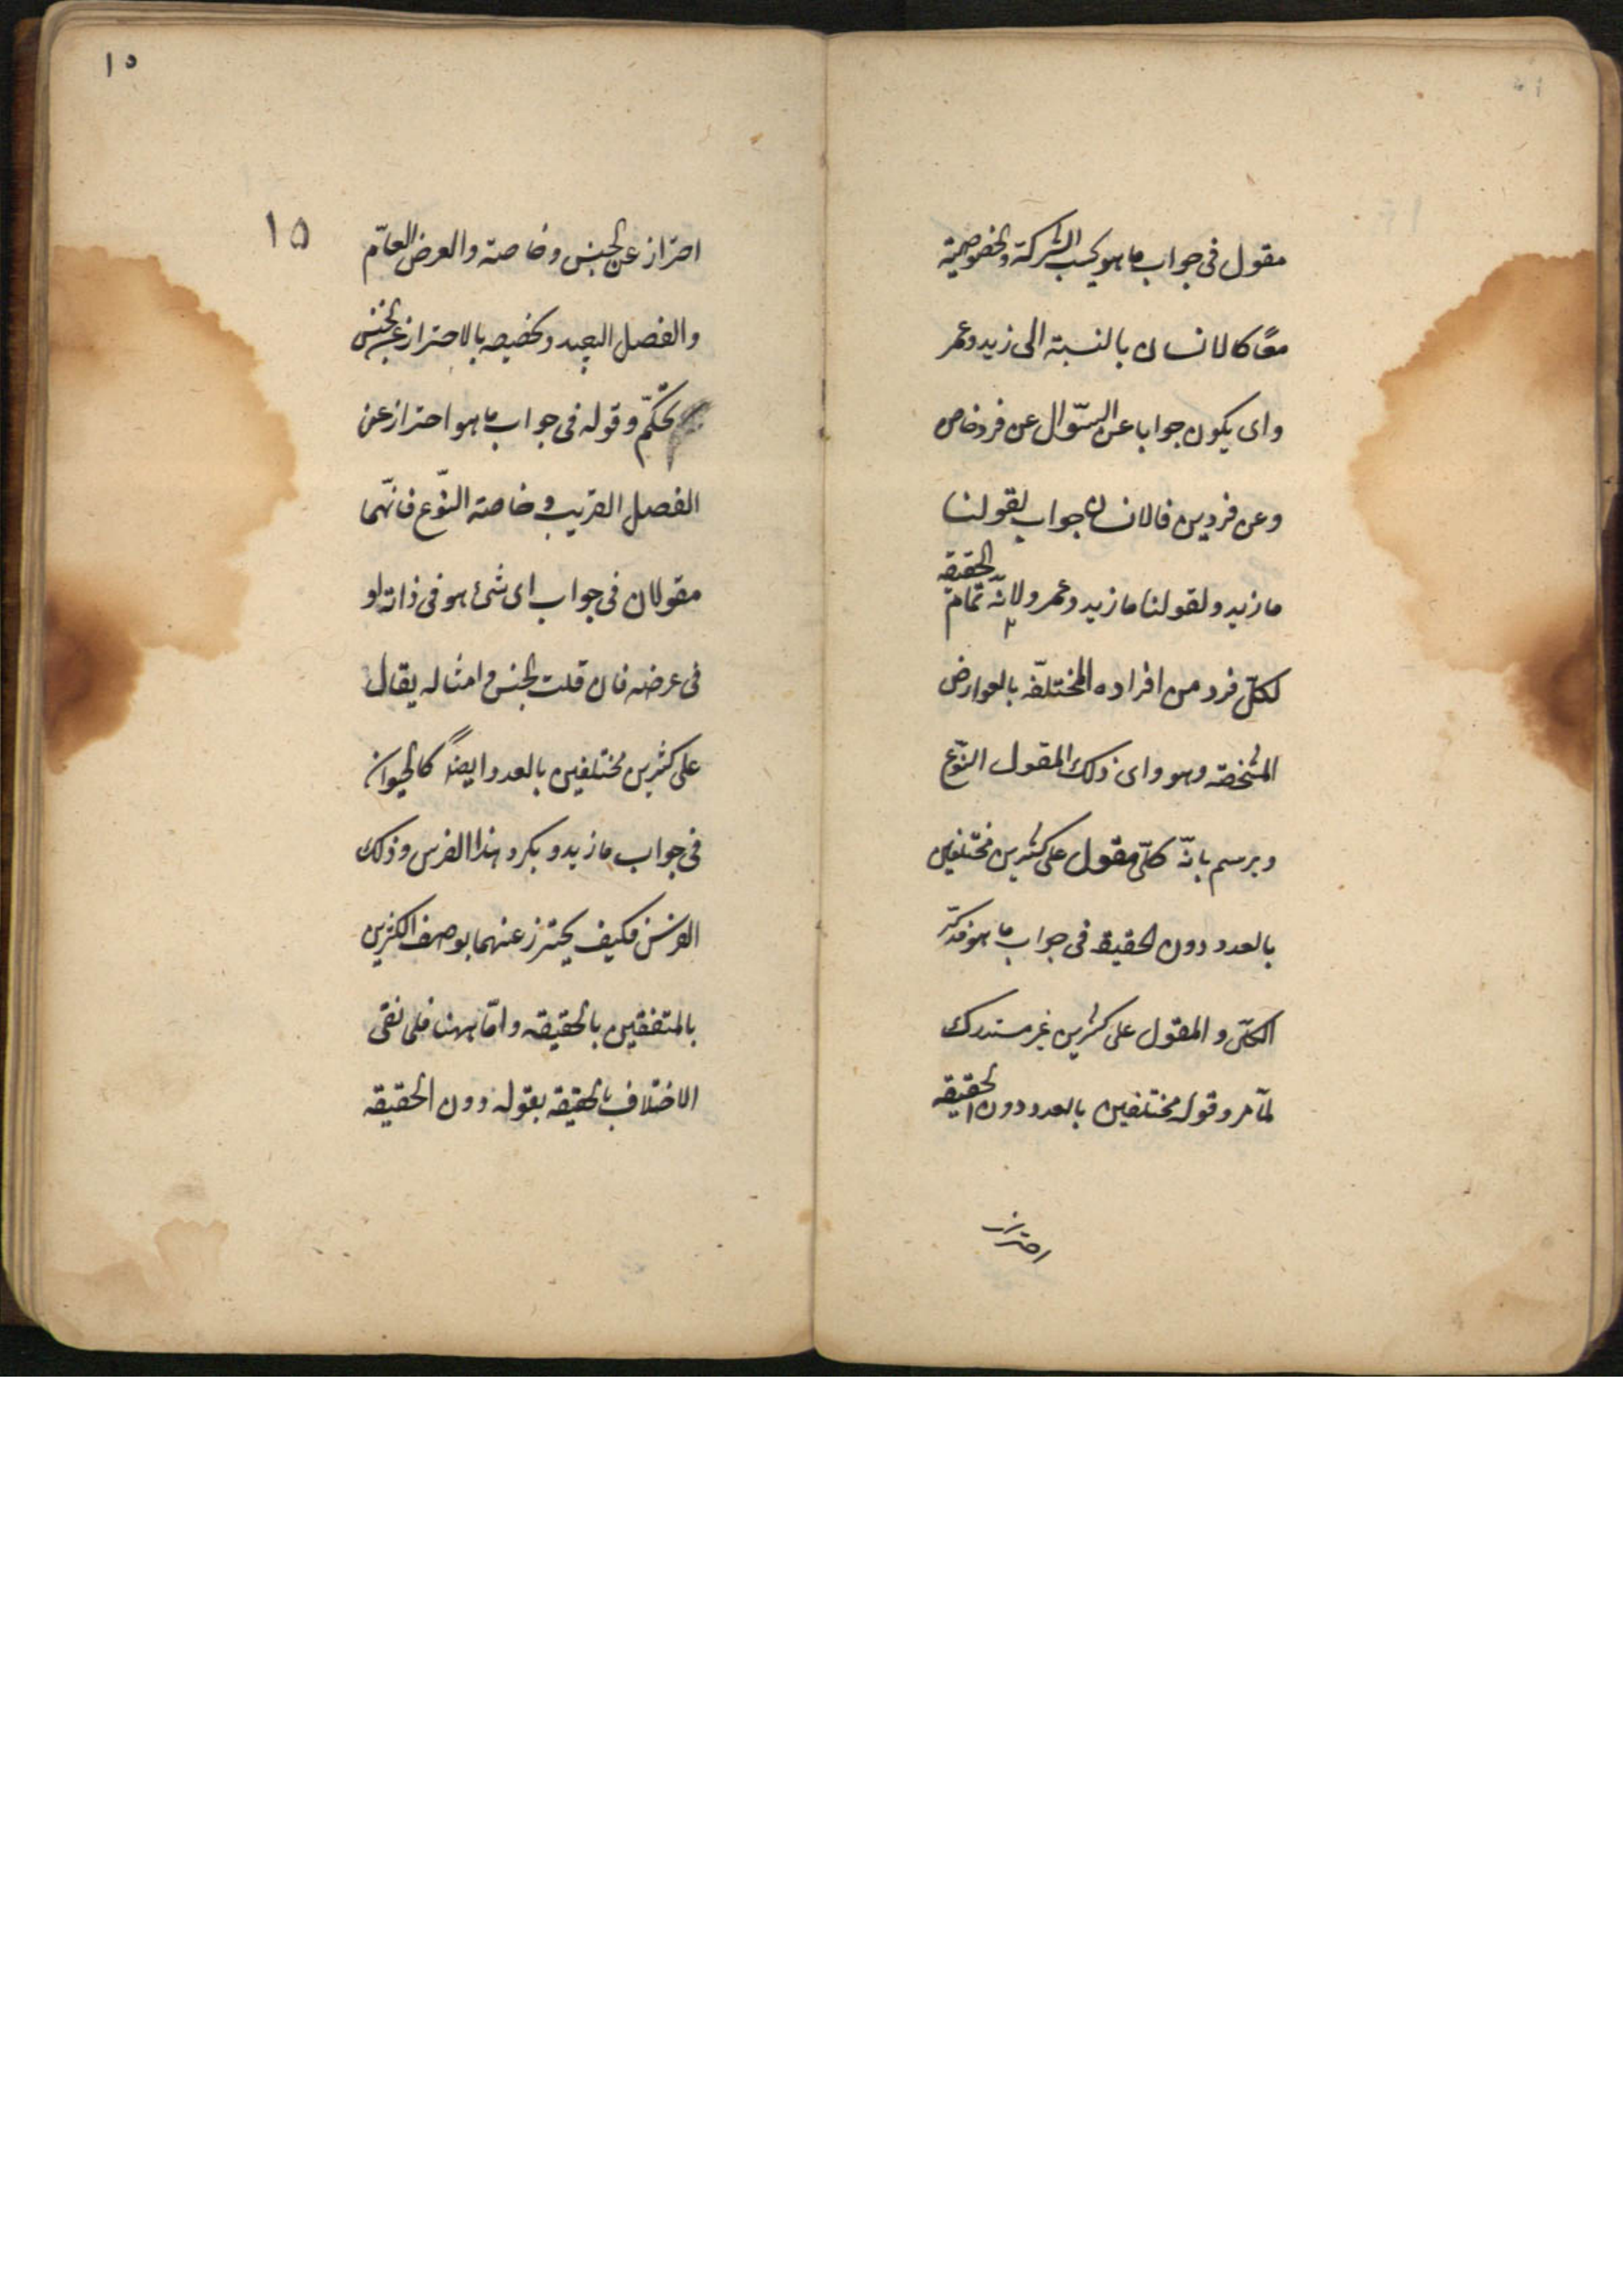 مقول فى جواب ما هو بحسب الشركة والخصوصية
معًا كالانسان بالنسبة الى زيد وعمر
واى يكون جوابا عن السّوال عن فرد خاص
وعن فردين فالانسان جواب لقولنا
ما زيد ولقولنا ما زيد وعمر ولانّه تمام الحقيقه
لكلّ فرد من افراده المختلفة بالعوارض
المشخصه وهو واى ذلك المقول النّوع
ويرسم بانّه كلّى مقول على كثيرين مختلفين
بالعدد دون الحقيقة فى جواب ما هو فذكر
الكلّى و المقول على كثيرين غير مستدرك
لمّا مر وقوله مختلفين بالعدد دون الحقيقه
احتراز
١٥
١٥
احتراز عن الجنس وخاصته والعرض العامّ
والفصل البعيد وتخصيصه بالاحتراز عن الجنس
تحكّم وقوله فى جواب ما هو احتراز عن
الفصل القريب و خاصة النّوع فانّهما
مقولان فى جواب اى شئ هو فى ذاته او
فى عرضه فان قلت الجنس وامثاله يقال
على كثيرين مختلفين بالعدد ايضاً كالحيوان
فى جواب ما زيد و بكر و هذا الفرس و ذلك
الفرس فكيف يحترز عنهما بوصف الكثيرين
بالمتفقين بالحقيقه و امّا ههنا فلى نفى
الاختلاف بالحقيقه بقوله دون الحقيقه